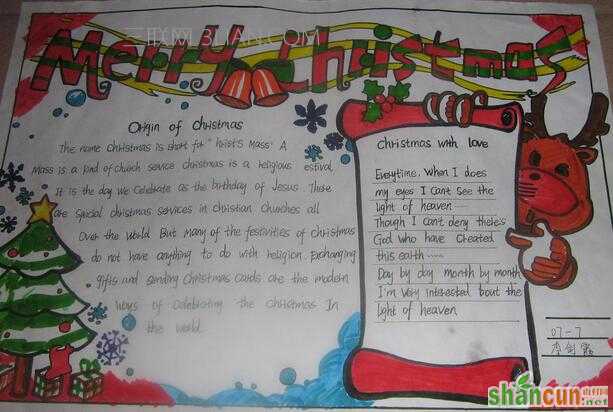 三联网 3LIAN.COM
Merry Christmas
Origin of christmas
The name christmas is short for "hrist's Mass" A
Mass is a kind of church service christmas is a religious estival
It is the day we celebrate as the birthday of Jesus These
are special christmas services in christian Churches all
Over the world But many of the festivities of christmas
do not have anything to do with religion Exchanging
gifts and sending Christmas cards are the modern
ways of celebrating the christmas In
the world
Christmas with love
Everytime, When I does
my eyes I can't see the
light of heaven
Though I can't deny there's
God who have created
this earth ......
Day by day month by month
I'm very interested bout the
light of heaven
07-7
shancun.net